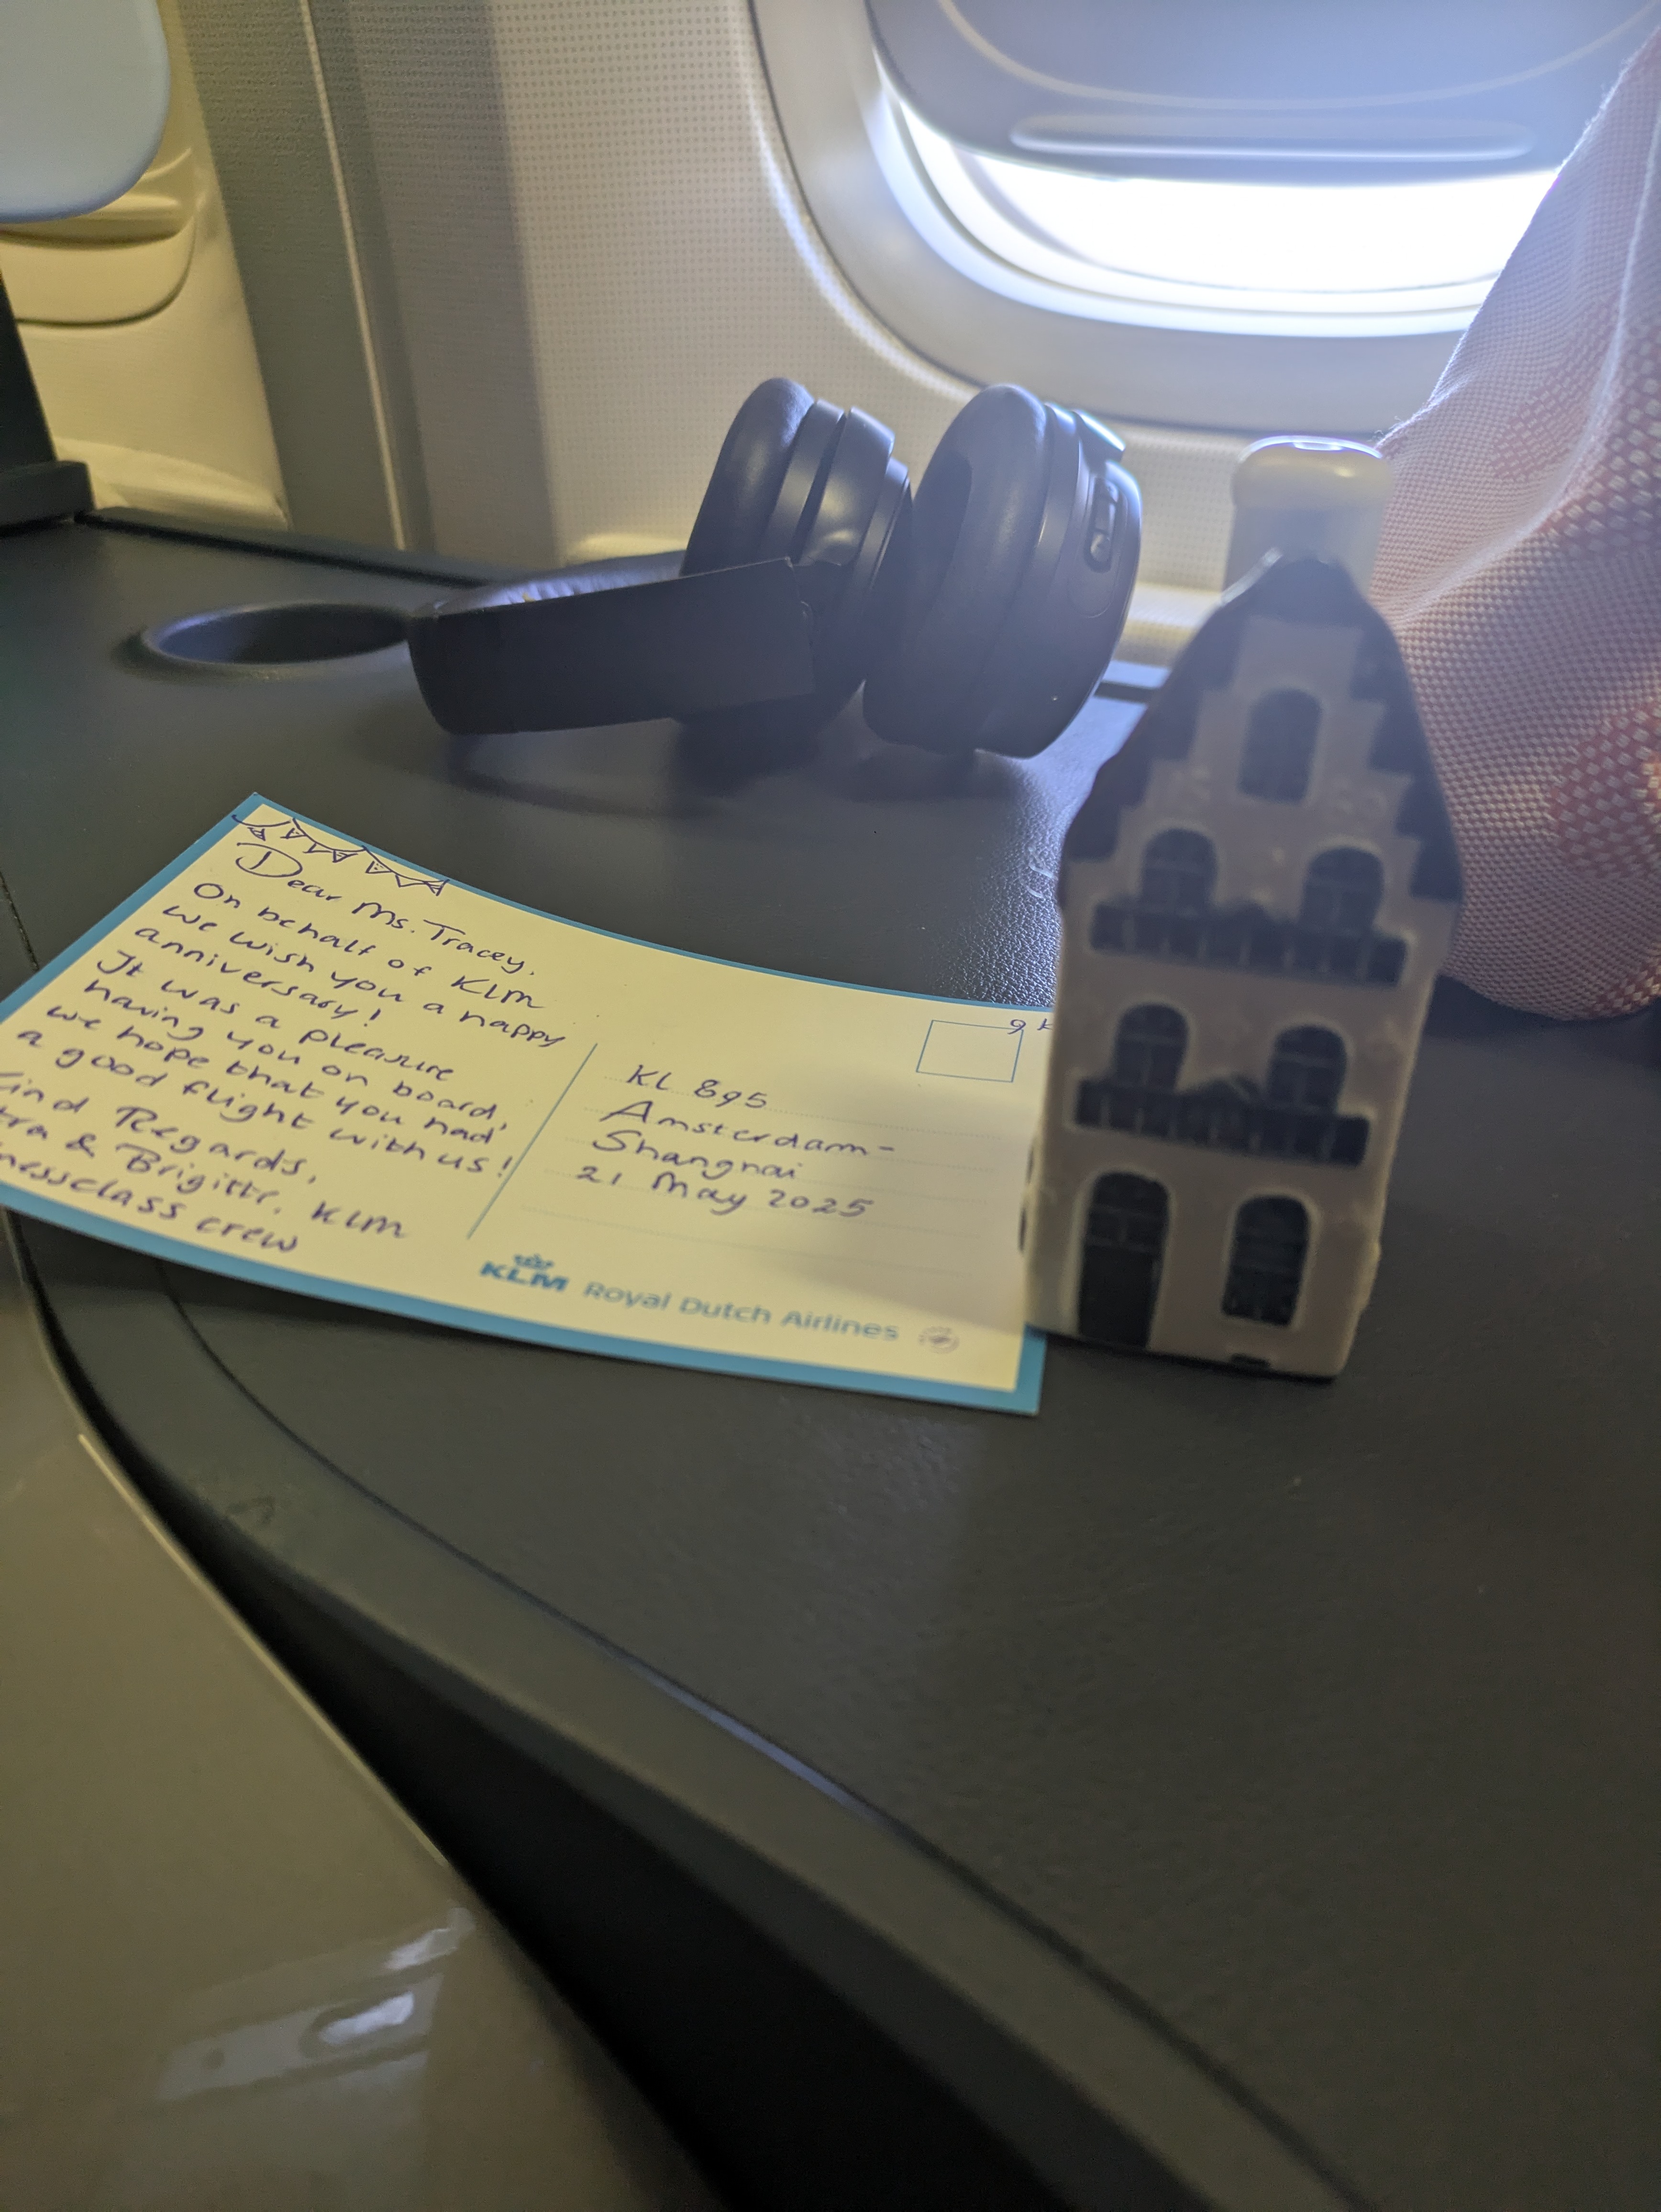 Dear Ms. Tracey,
On behalf of KLM
we wish you a happy
anniversary!
It was a pleasure
having you on board,
we hope that you had
a good flight with us!
Regards,
& Brigitte, KLM
crew
KL 895
Amsterdam-
Shanghai
21 May 2025
KLM Royal Dutch Airlines